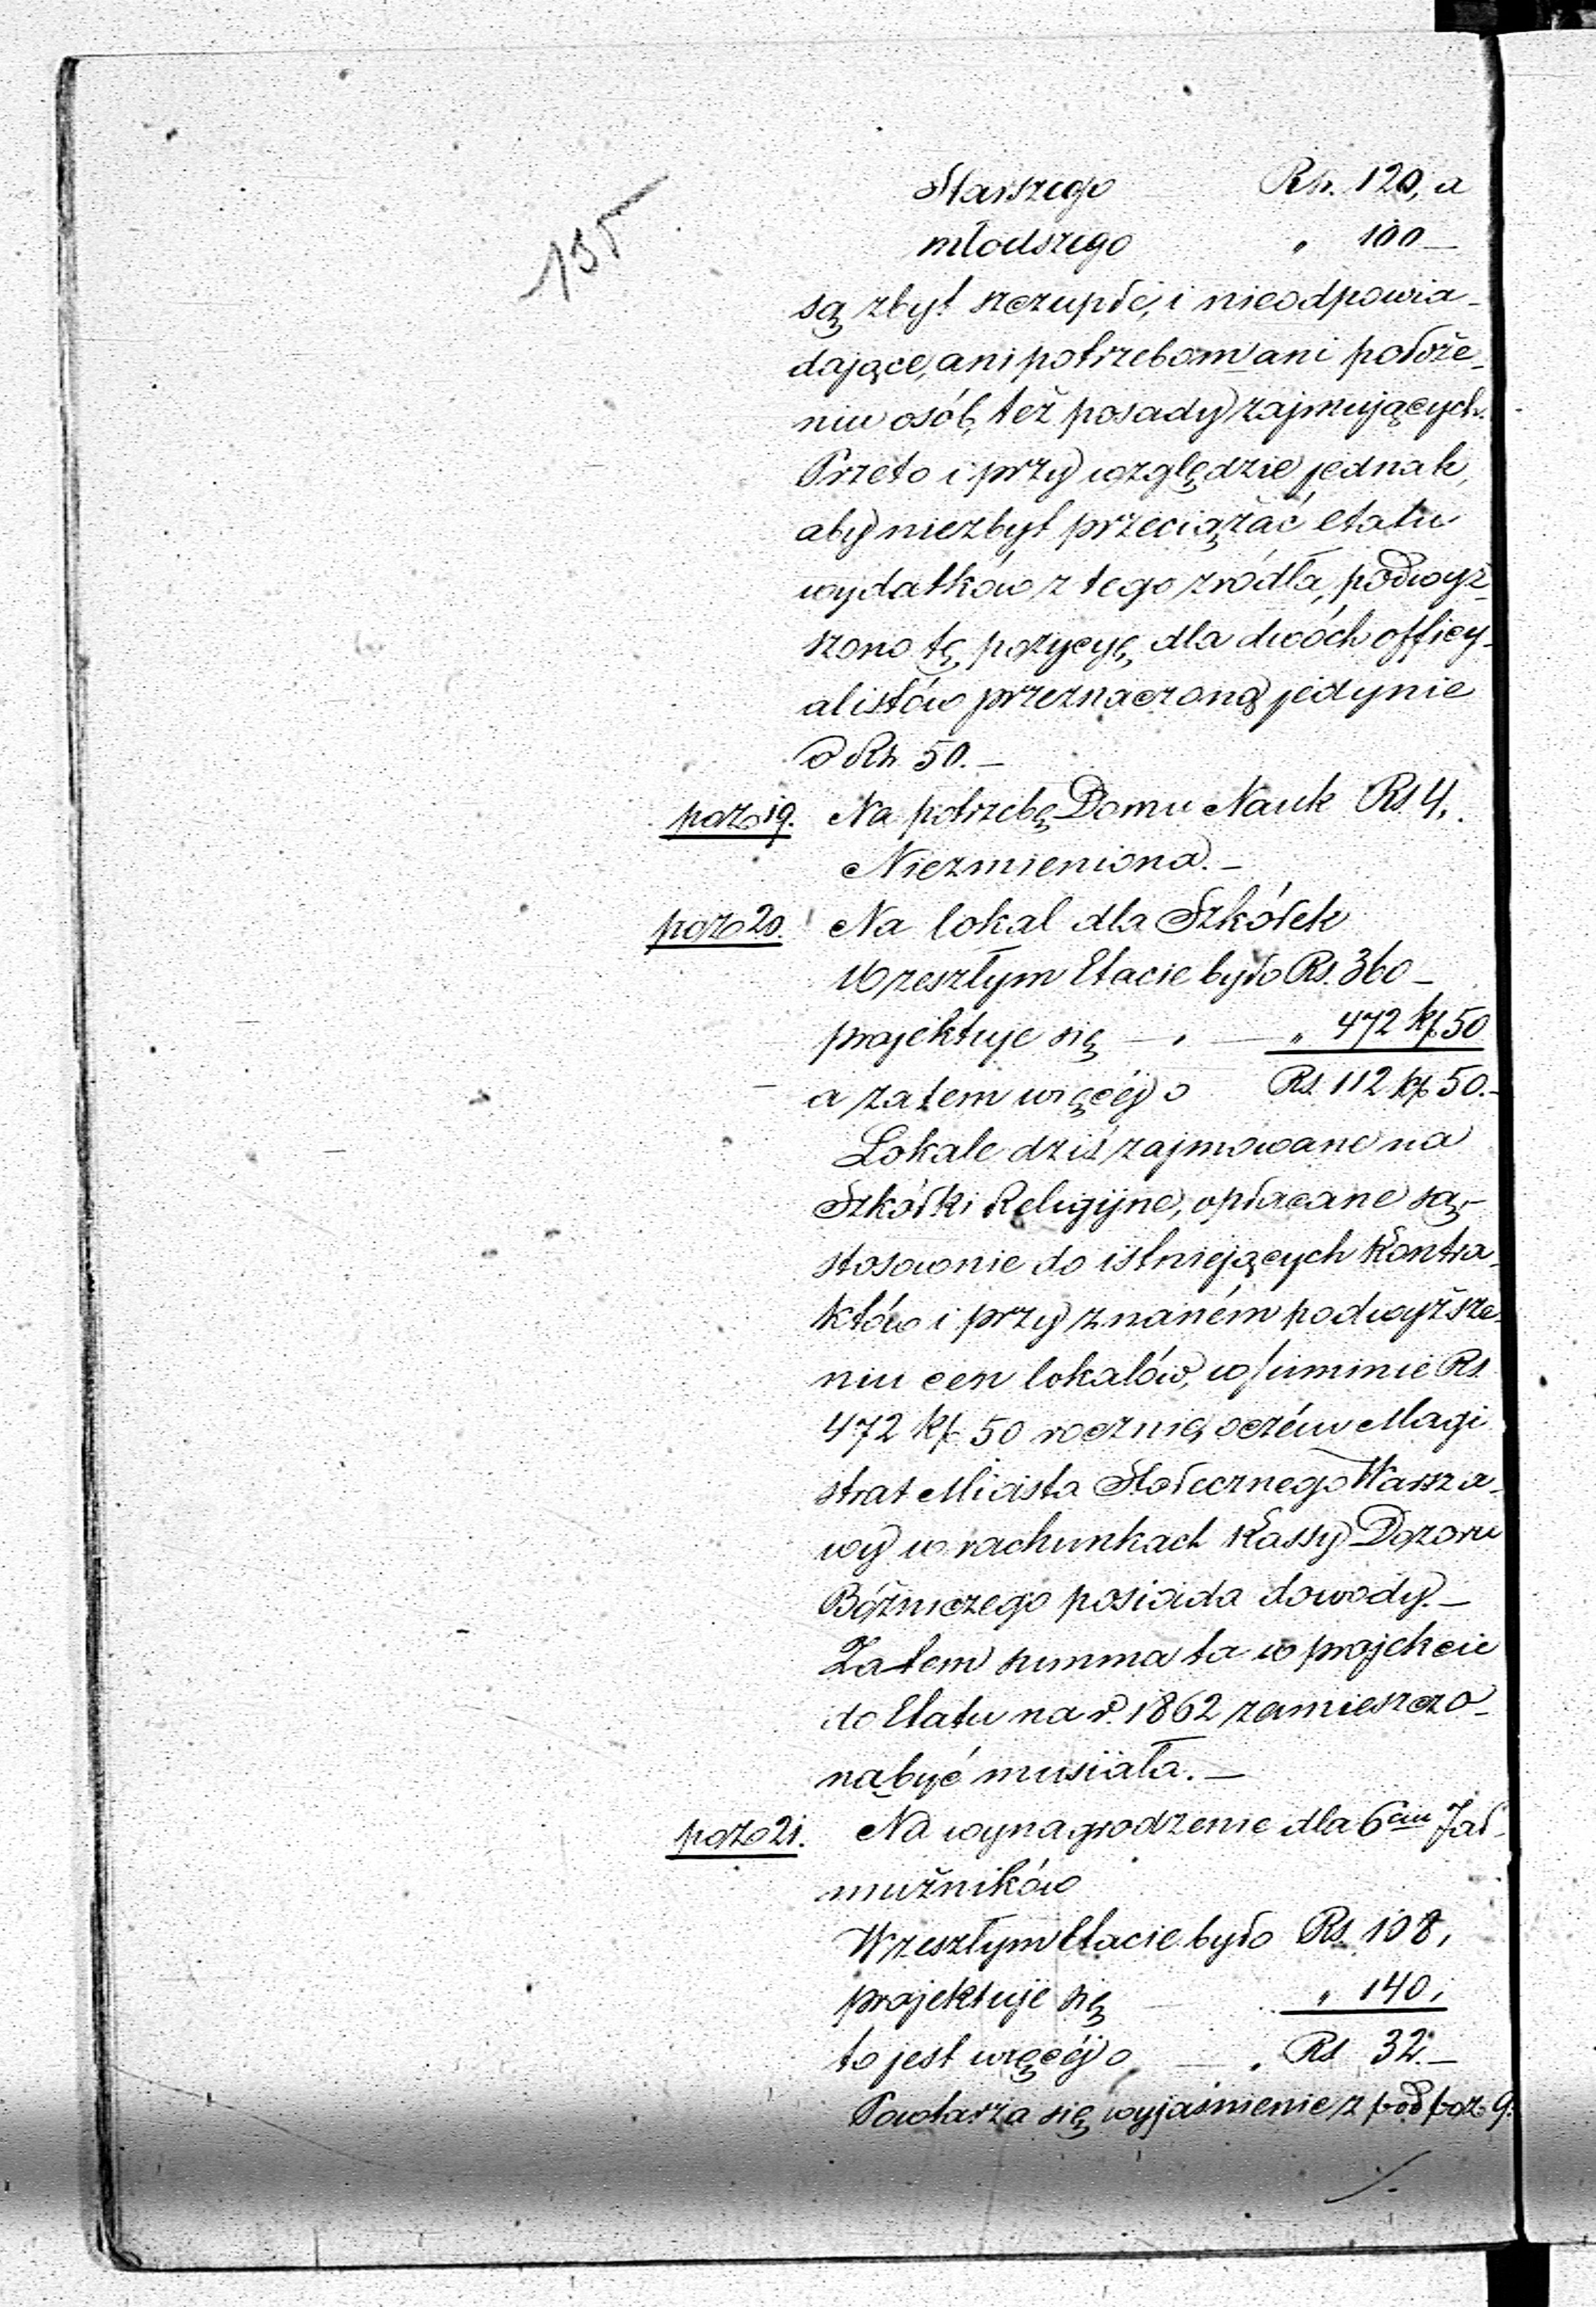 135
Starszego Rs. 120, a
młodszego " 100 —
są zbyt szczupłe, i nieodpowia-
dające, ani potrzebom ani położe-
niu osób, też posady zajmujących.
Przeto i przy względzie jednak,
aby niezbyt przeciążać etatu
wydatków z tego źródła, podwyż-
szono tę pozycyę, dla dwóch officy-
alistów przeznaczoną jedynie
o Rs. 50. —
poz 19. Na potrzebę Domu Nauk Rs. 4,.
Niezmieniona. —
poz 20. Na lokal dla Szkółek
W zeszłym Etacie było Rs. 360 —
projektuje się — " — " 472 kp. 50
a zatem więcéj o Rs. 112 kp 50. —
Lokale dziś zajmowane na
Szkółki Religijne, opłacane są —
stosownie do istniejących Kontra-
któw i przy znaném podwyższe-
niu cen lokalów, w summie Rs.
472 kp. 50 rocznie, o czém Magi
strat Miasta Stołecznego Warsza-
wy w rachunkach Kassy Dozoru
Bóżniczego posiada dowody. —
Zatem summa ta w projekcie
do Etatu na r. 1862 zamieszczo-
ną być musiała. —
poz 21. Na wynagrodzenie dla 6ciu Jał-
mużników
W zeszłym Etacie było Rs. 108,
projektuje się — " 140,
to jest więcéj o — " Rs 32. —
Powtarza się wyjaśnienie z pod poz 9.